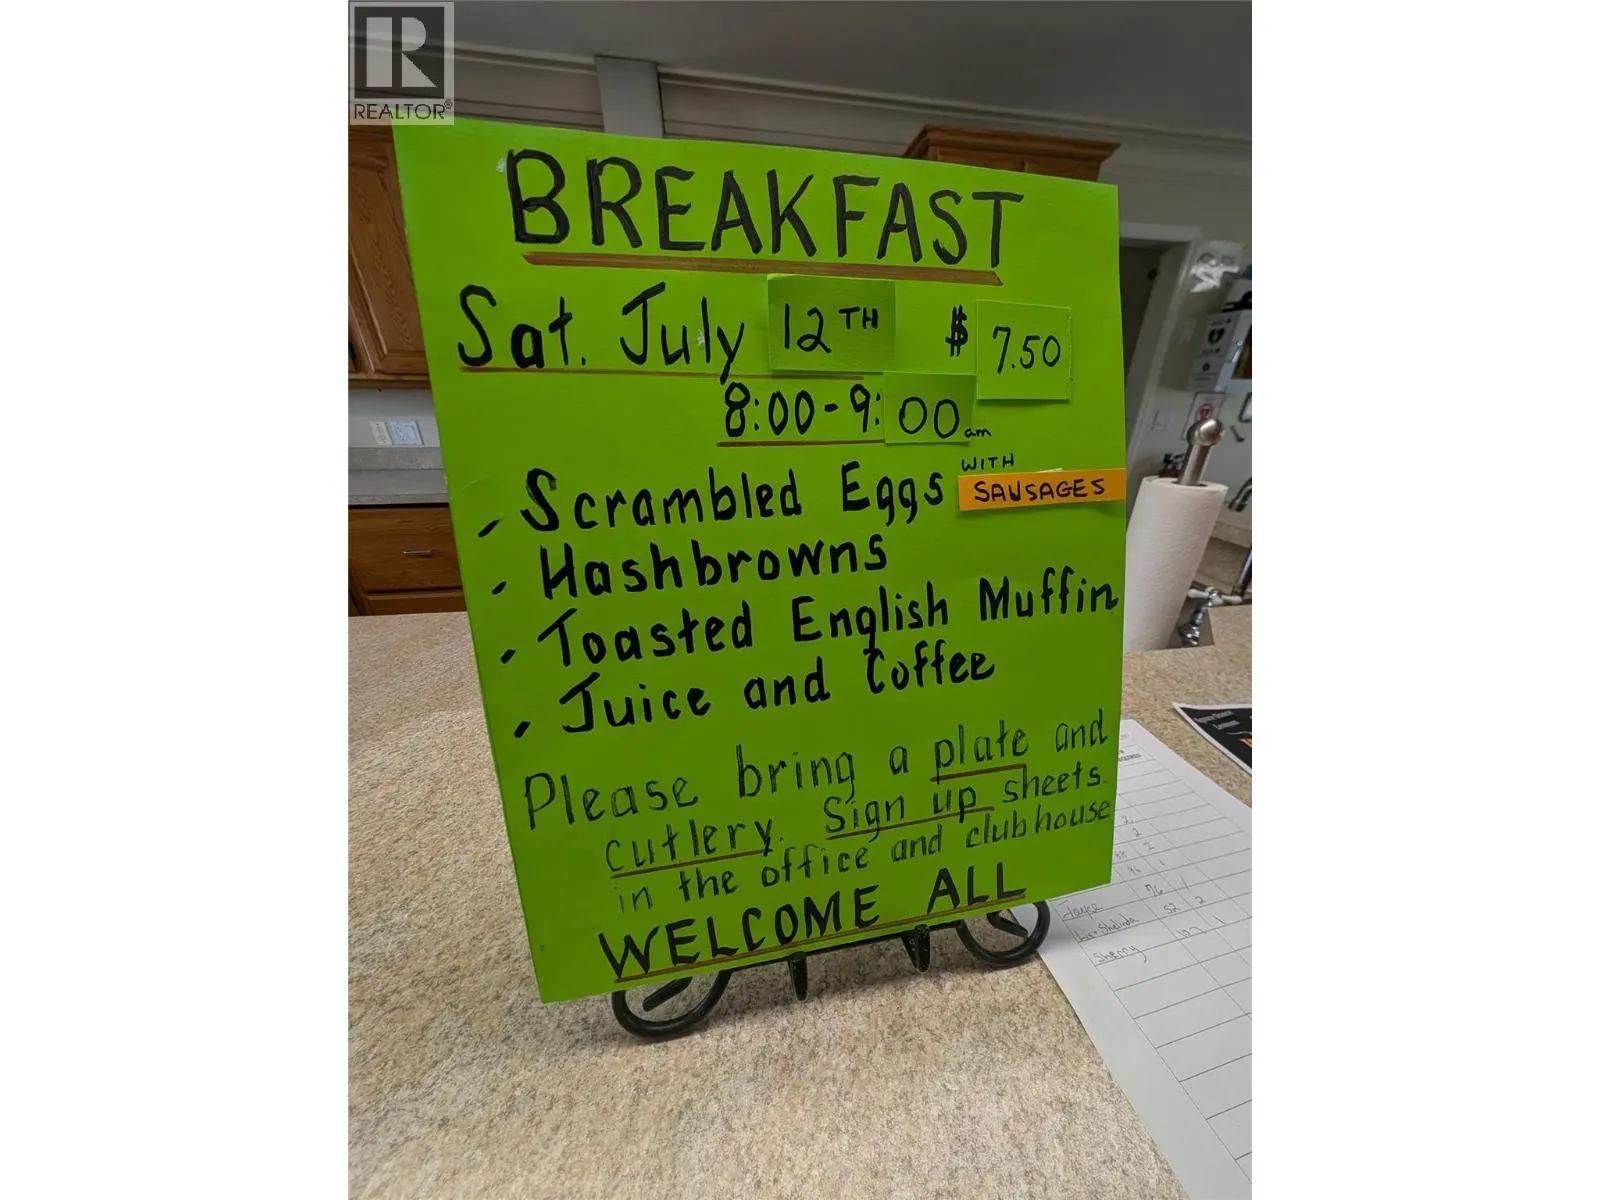 REALTOR®
BREAKFAST
Sat. July 12TH $ 7.50
8:00-9:00 am
- Scrambled Eggs WITH SAUSAGES
- Hashbrowns
- Toasted English Muffin
- Juice and Coffee
Please bring a plate and
cutlery. Sign up sheets.
in the office and clubhouse
WELCOME ALL
2
2
2
Joyce 76 1
52 2
Sherry 107 1